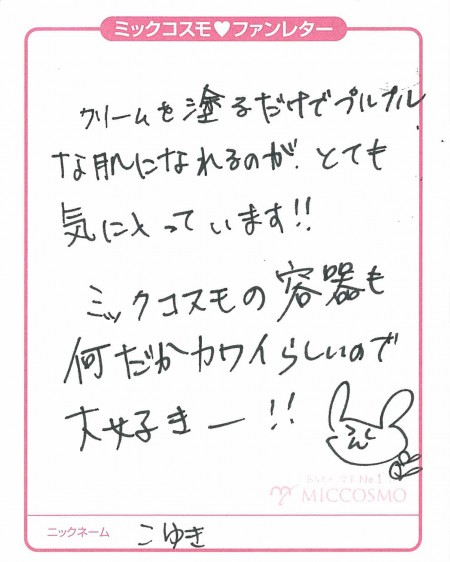 ミックコスモ♥ファンレター
クリームを塗るだけでプルプル
な肌になれるのが、とても
気に入っています!!
ミックコスモの容器も
何だかカワイらしいので
大好きー!!
MICCOSMO
ニックネーム こゆき